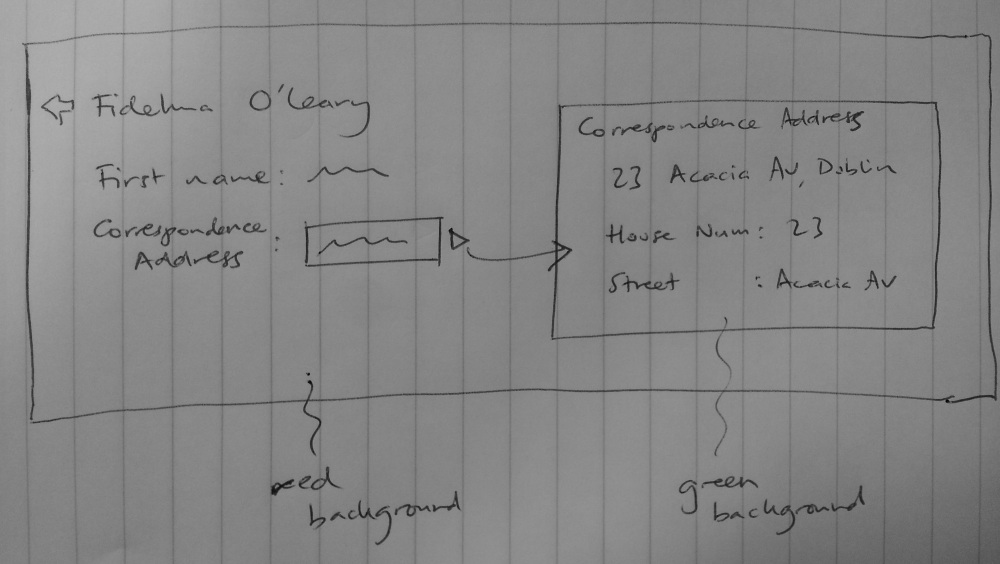 Fidelma O'Leary
First name:
Correspondence
Address :
Correspondence Address
23 Acacia Av, Dublin
House Num: 23
Street : Acacia Av
red
background
green
background